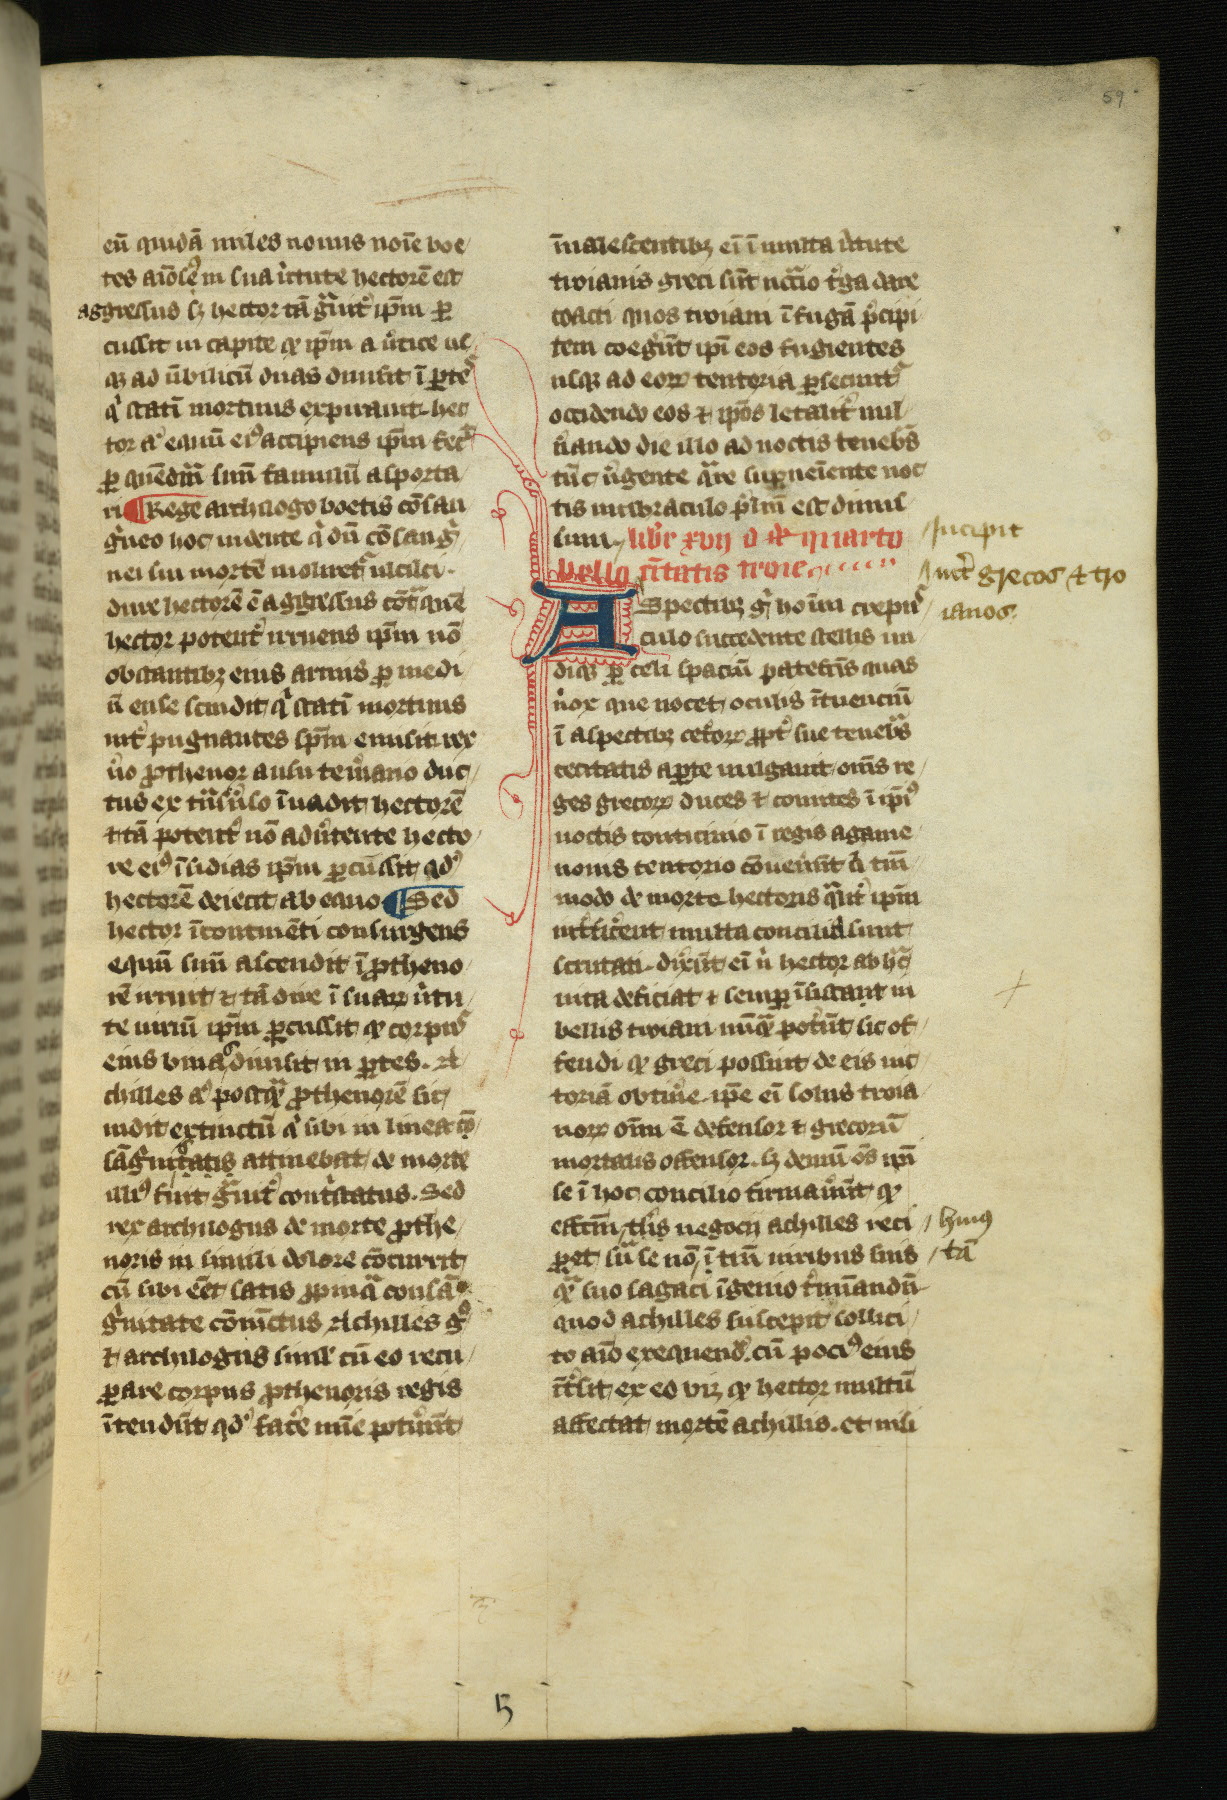 59
eū quidā miles nomīs noīe boe
tes aīose in sua ůtute hectorē est
aggressus sꝫ hector tā gͣuit͛ ip̄m ꝑ
cussit in capite ꝙ ip̄m a ůtice us
qꝫ ad ūbilicū duas diuisit ī ꝑtes
q̇ statī mortuus expirauit hec
tor aͥ equū eiꝰ accipiens ip̄m fecͭ
ꝑ quēdā suū famulū asporta
ri ¶ Rege archilogo boetis cōsan
gͥneo hoc uidente q̇ dū cōsangͥ
nei sui mortē moliretͬ ulcisci
dire hectorē ē aggressus cōtͣ quē
hector potent͛ irruens ip̄m nō
obstantibꝫ eius armis ꝑ medi
ū ense scindit q̇ statī mortuus
int͛ pugnantes sp̄m emisit rex
u̇o ꝓthenor ausu tem̄ario duc
tus ex trͣsůso īuadit hectorē
⁊ tā potent͛ nō adůtente hecto
re eiꝰ īsidias ip̄m ꝑcussit qdͦ
hectorē deiecit ab equo ¶ Sed
hector īcontinēti consurgens
equū suū ascendit ī ꝓtheno
rē irruit ⁊ tā dire ī suaꝝ ůtu
te uiriū ip̄m ꝑcussit ꝙ corpus
eius bina diuisit in ꝑtes. A
chilles aͥ postqͣ ꝓthenorē sic
uidit extinctū q̇ sibi in linea cō
sāgͥnitatis attinebat de morte
illiꝰ fuit gͣuit͛ contͥstatus. Sed
rex archilogus de morte ꝓthe
noris in simili dolore cōcurrit
cū sibi eēt satis ꝓpinqͣ consā
gͥnitate cōiūctus Achilles gͦ
⁊ archilogus simͥl cū eo recu
ꝑare corpus ꝓthenoris regis
ītendūt qdͦ fac͛e mīe potůūt
īualescentibꝫ eī ī multa ůtute
troianis greci sūt nccͣio t͛ga dare
coacti quos troiani ī fugā p͛cipi
tem coeg͛ūt ipī eos fugientes
usqꝫ ad eoꝝ tentoria ꝑsecūtͬ
occidendo eos ⁊ ipōs letalit͛ uul
n̄ando die illo ad noctis tenebͣs
tūc ůgente qͣre suꝑueīente noc
tis umbraculo p͛liū est dimis
sum. libͬ xvij d de quarto
bello cītatis troie
Aspectibꝫ gͦ hoīm crepus
culo succedente stellis un
diqꝫ ꝑ celi spaciū patefc̄is quas
nox que nocet oculis ītuenciū
ī aspectibꝫ cet͛oꝝ ꝓpt͛ sue tenebͣs
cecitatis aꝑte uulgauit omīs re
ges grecoꝝ duces ⁊ comites ī ipīꝰ
noctis conticinio ī regis agame
nonis tentorio cōuen̄ūt ḋ tm̄
modo de morte hectoris qͣlit͛ ip̄m
int͛ficerent multa concilia sunt
scrutati. dix͛ūt eī n̄ hector ab hac
uita deficiat ⁊ semꝑ īsistant in
bellis troiani nūqͣ pot͛ūt sic of
fendi ꝙ greci possint de eis uic
toriā obtin͛e. ipē eī solus troia
noꝝ oīm ē defensor ⁊ grecorū
mortalis offensor. sꝫ demū oēs in
se ī hoc concilio firmau͛ūt ꝙ
effcm̄ tlis negocij achilles reci
ꝑet suͣ se nō ī tm̄ uiribus suis
qͣ suo sagaci īgenio t͛minandū
quod achilles suscepit sollici
to aīo exequendͦ. cū pociꝰ eius
īt͛sit ex eo uiꝫ ꝙ hector multū
affectat mortē achillis. et nisi
Incipit
int͛ grecos ⁊ tro
ianos
huiꝰ
tā
5